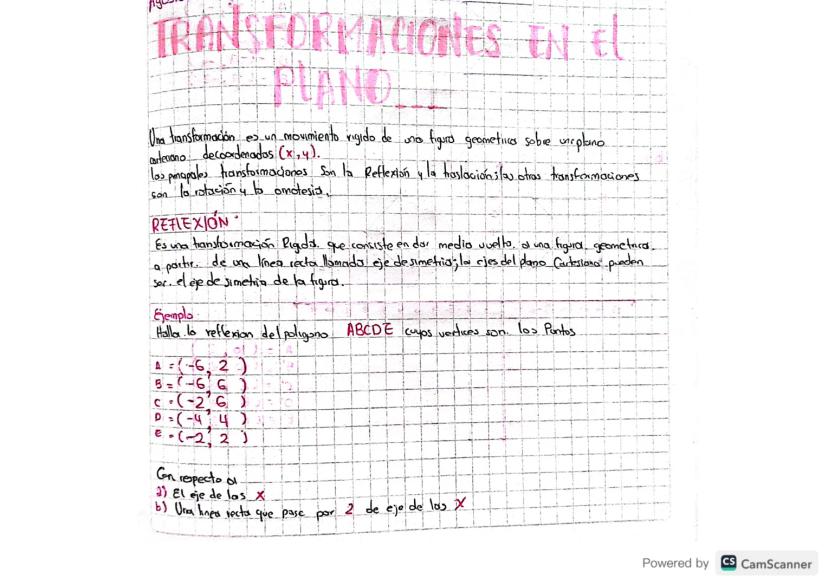 TRANSFORMACIONES EN El
PLANO...
Una transformación es un movimiento rigido de una figura geometrica sobre un plano
decoordenados (x,y).
las principales transformaciones son la Reflexión y la traslación; las otras transformaciones
son la rotación y la omotesia.
REFLEXIÓN
Es una transformación Rigida. que consiste en dar media vuelta. a una figura. geometrica.
a partir. de una línea recta llamada eje de simetria; los ejes del plano Cartesiano pueden
ser. el eje de simetria de la figura.
Ejemplo
Halla. la reflexion del poligono ABCDE cuyos vertices son. los Puntos
A = (-6, 2 )
B = (-6, 6 )
C = (-2, 6 )
D = (-4, 4 )
E = (-2, 2 )
Con respecto a
a) El eje de las X
b) Una linea recta que pase por 2 de eje de las X
Powered by CS CamScanner